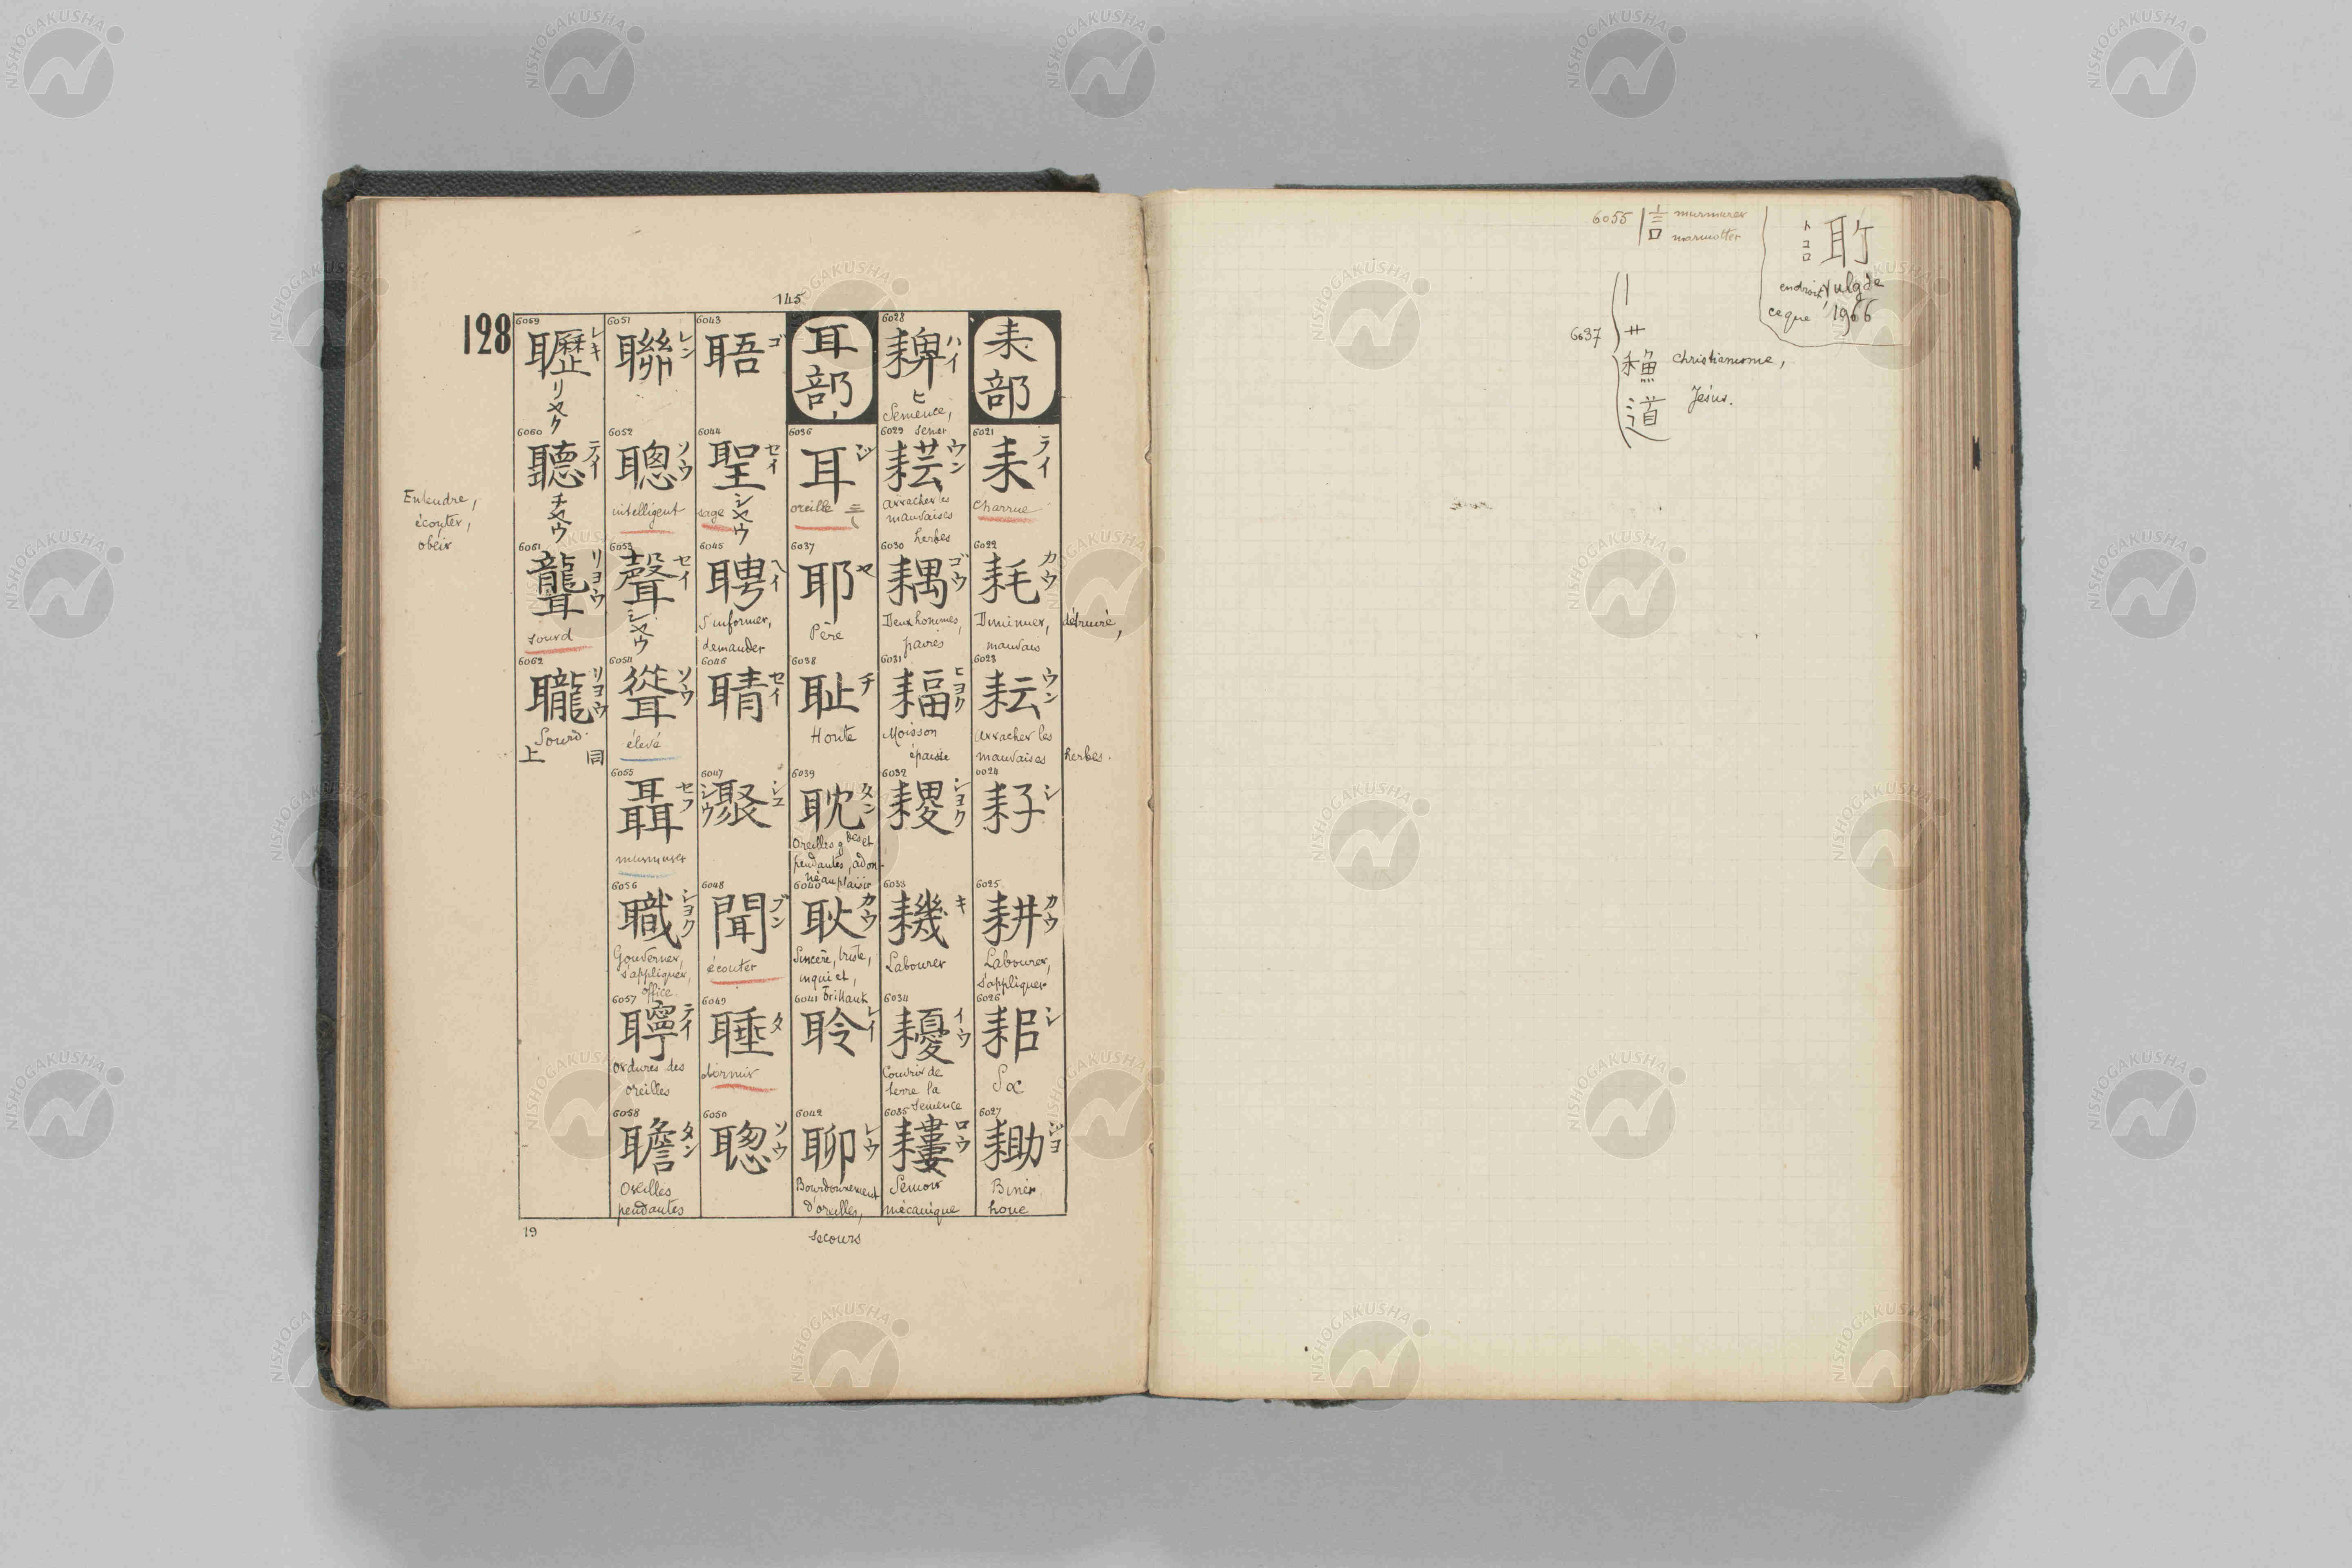 145
128
耒部
6021
耒
ライ
Charrue
6022
耗
カウ
Diminuer, détruire,
mauvais
6023
耘
ウン
Arracher les
mauvaises herbes.
6024
耔
シ
6025
耕
カウ
Labourer,
s'appliquer
6026
耜
シ
Soc
6027
耡
ジヨ
Biner,
houe
6028
ハイ
ヒ
Semence,
semer
6029
耘
ウン
Arracher les
mauvaises
herbes
6030
耦
ゴウ
Deux hommes,
paires
6031
ヒヨク
Moisson
épaisse
6032
稷
シヨク
6033
キ
Labourer
6034
耰
イウ
Couvrir de
terre la
semence
6035
耬
ロウ
Semoir
mécanique
耳部
6036
耳
ジ
oreille
6037
耶
ヤ
Père
6038
耻
チ
Honte
6039
耽
タン
Oreilles gdes et
pendantes, adon-
né au plaisir
6040
耿
カウ
Sincère, triste,
inquiet,
brillant
6041
聆
レイ
6042
聊
レウ
Bourdonnement
d'oreilles,
secours
6043
聕
ゴ
6044
聖
セイ
シヤウ
sage
6045
聘
ヘイ
S'informer,
demander
6046
聙
セイ
6047
聚
シユ
シウ
6048
聞
ブン
écouter
6049
睡
タ
dormir
6050
聡
ソウ
6051
聯
レン
6052
聰
ソウ
intelligent
6053
聲
セイ
シヤウ
6054
聳
ソウ
élevé
6055
聶
セフ
murmurer
6056
職
シヨク
Gouverner,
s'appliquer,
office.
6057
聹
テイ
Ordures des
oreilles
6058
聸
タン
Oreilles
pendantes
6059
レキ
リヤク
6060
聽
テイ
チヤウ
Entendre,
écouter,
obéir
6061
聾
リヨウ
sourd
6062
リヨウ
Sourd.
同上
19
6055 言 murmurer
marmotter
トコロ
endroit, vulg de
ce que 1966
6037
穌 christianisme,
道 Jésus.
NISHOGAKUSHA